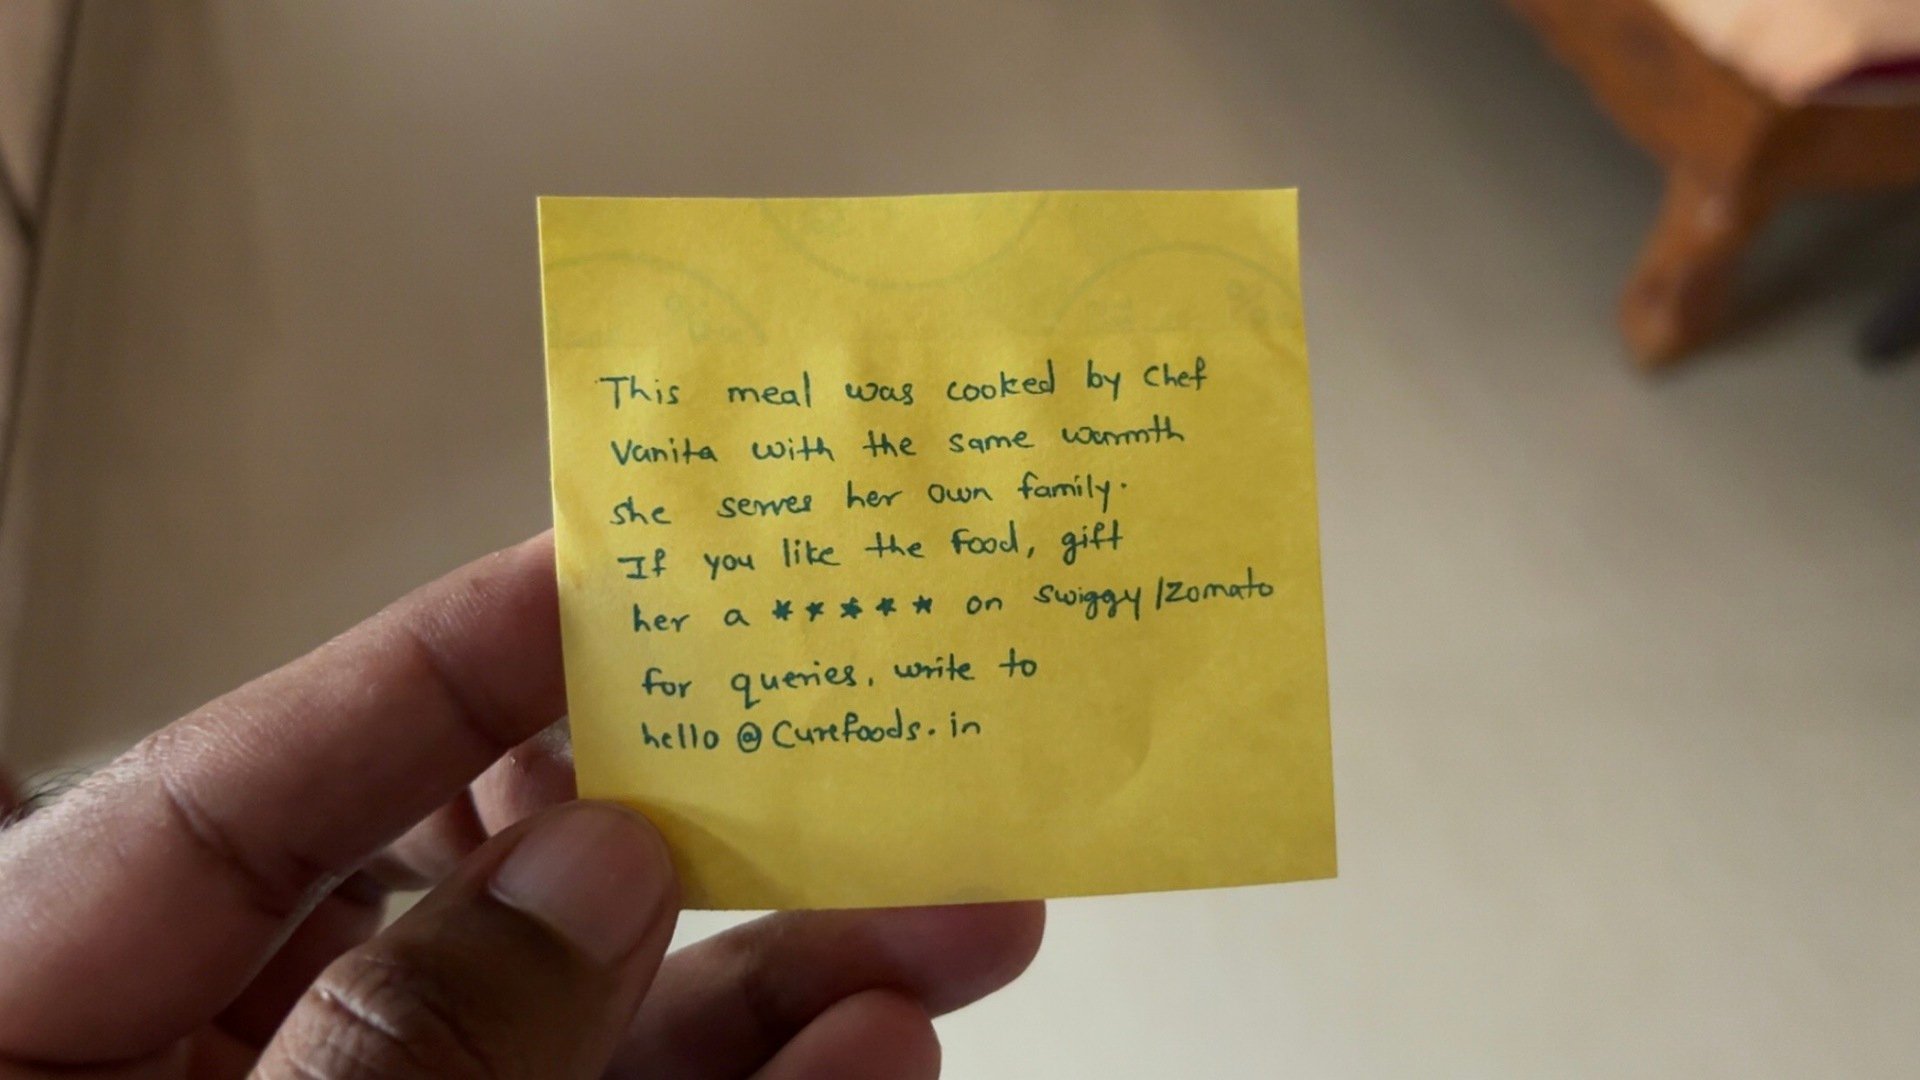 This meal was cooked by Chef
Vanita with the same warmth
she serves her own family.
If you like the food, gift
her a ★★★★★ on swiggy/zomato
for queries, write to
hello@Curefoods.in